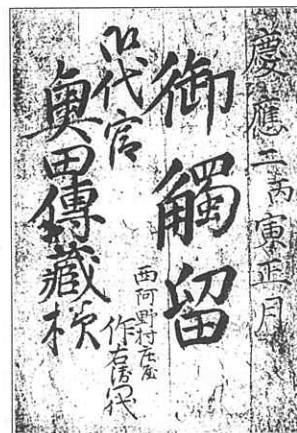 慶應二丙寅正月
御觸留
御代官
奥田傳藏様
西阿野村庄屋
作右衛門代